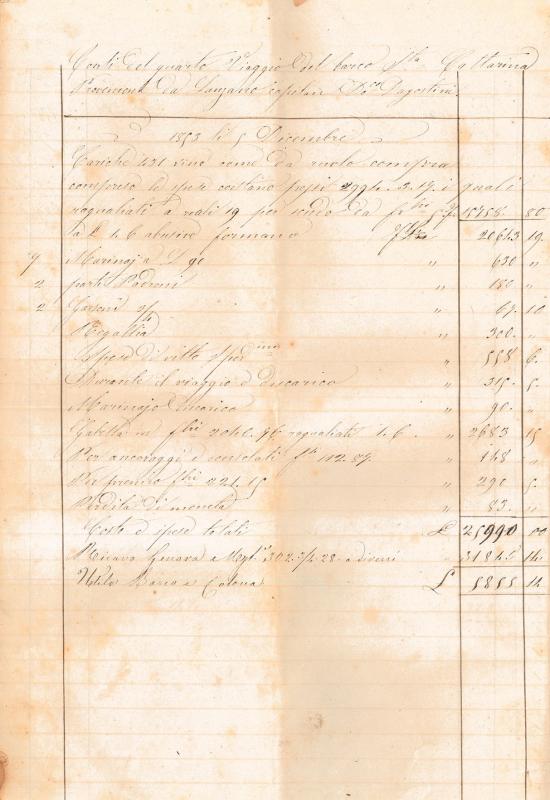 Conti del quarto Viaggio del barco S.ta Cattarina
Proveniente da Lanzano capitan D.co Dagostini
1853 li 5 Dicembre
Cariche 431 vino come da ruolo compra
compreso le spese costano pezzi 2994. 3. 17. i quali
ragualiati a reali 19 per scudo da f 15758. 80
la £ 1. 6 abusivo formano 20643 19
7 Marinaj a £ 90 " 630 "
2 parti Padroni " 180 "
2 Garsoni 3/4 " 67. 10
Regallia " 300. "
Spese di vitto Sped " 558 6.
Durante il viaggio e discarico " 315. 5.
Marinajo " 90. "
Gabella in f 2060. 96 ragualiati 1. 6. " 2683 15
Per ancoraggi e consolati f 112. 87. " 148 "
Per premio f 221. 15 " 290 5.
Perdita di moneta " 83. "
Costo e spese totali £ 25990 00
Ricavo Genova a M 302. 3/4. 28. a diversi 31845 14.
Utile Barco e Colona £ 5855 14